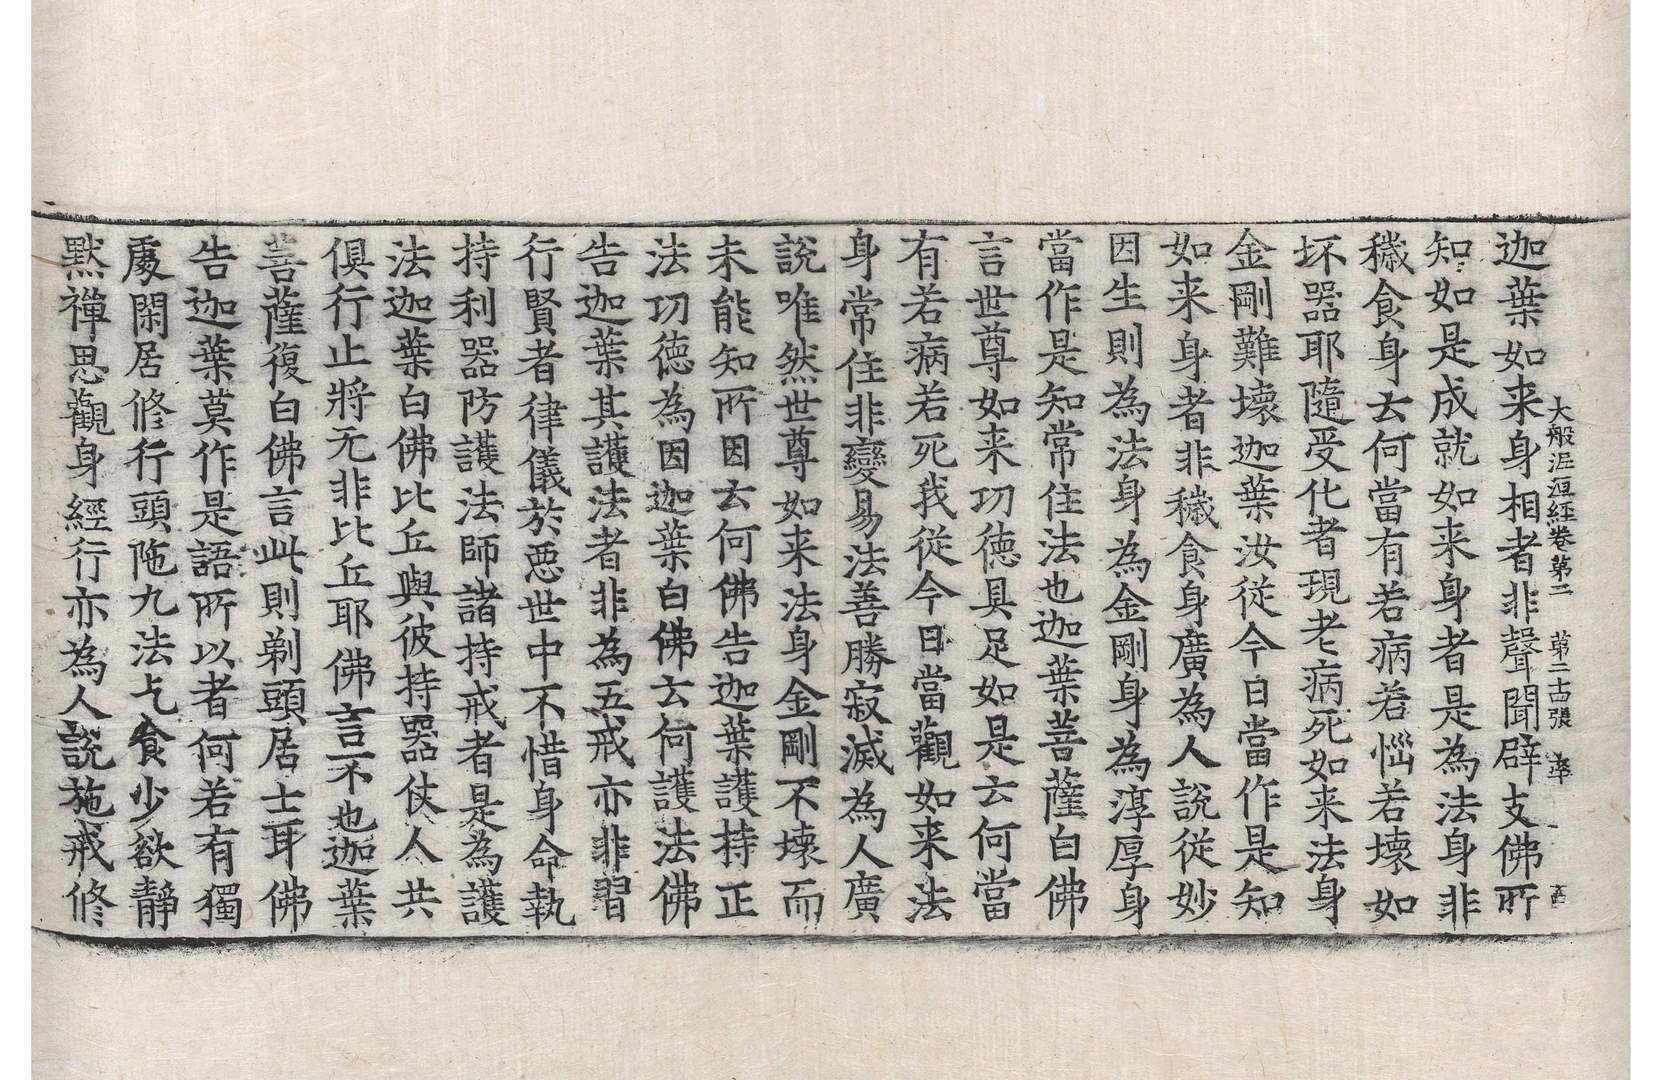 大般泥洹經卷第二 第二十古張 率
迦葉如来身相者非聲聞辟支佛所
知如是成就如来身者是為法身非
穢食身云何當有若病若惱若壞如
坏器耶隨受化者現老病死如来法身
金剛難壞迦葉汝從今日當作是知
如来身者非穢食身廣為人說從妙
因生則為法身為金剛身為淳厚身
當作是知常住法也迦葉菩薩白佛
言世尊如来功德具足如是云何當
有若病若死我從今日當觀如来法
身常住非變易法善勝寂滅為人廣
說唯然世尊如来法身金剛不壞而
未能知所因云何佛告迦葉護持正
法功德為因迦葉白佛云何護法佛
告迦葉其護法者非為五戒亦非習
行賢者律儀於惡世中不惜身命執
持利器防護法師諸持戒者是為護
法迦葉白佛比丘與彼持器仗人共
俱行止將无非比丘耶佛言不也迦葉
菩薩復白佛言此則剃頭居士耳佛
告迦葉莫作是語所以者何若有獨
處閑居修行頭陁九法乞食少欲靜
默禪思觀身經行亦為人說施戒修